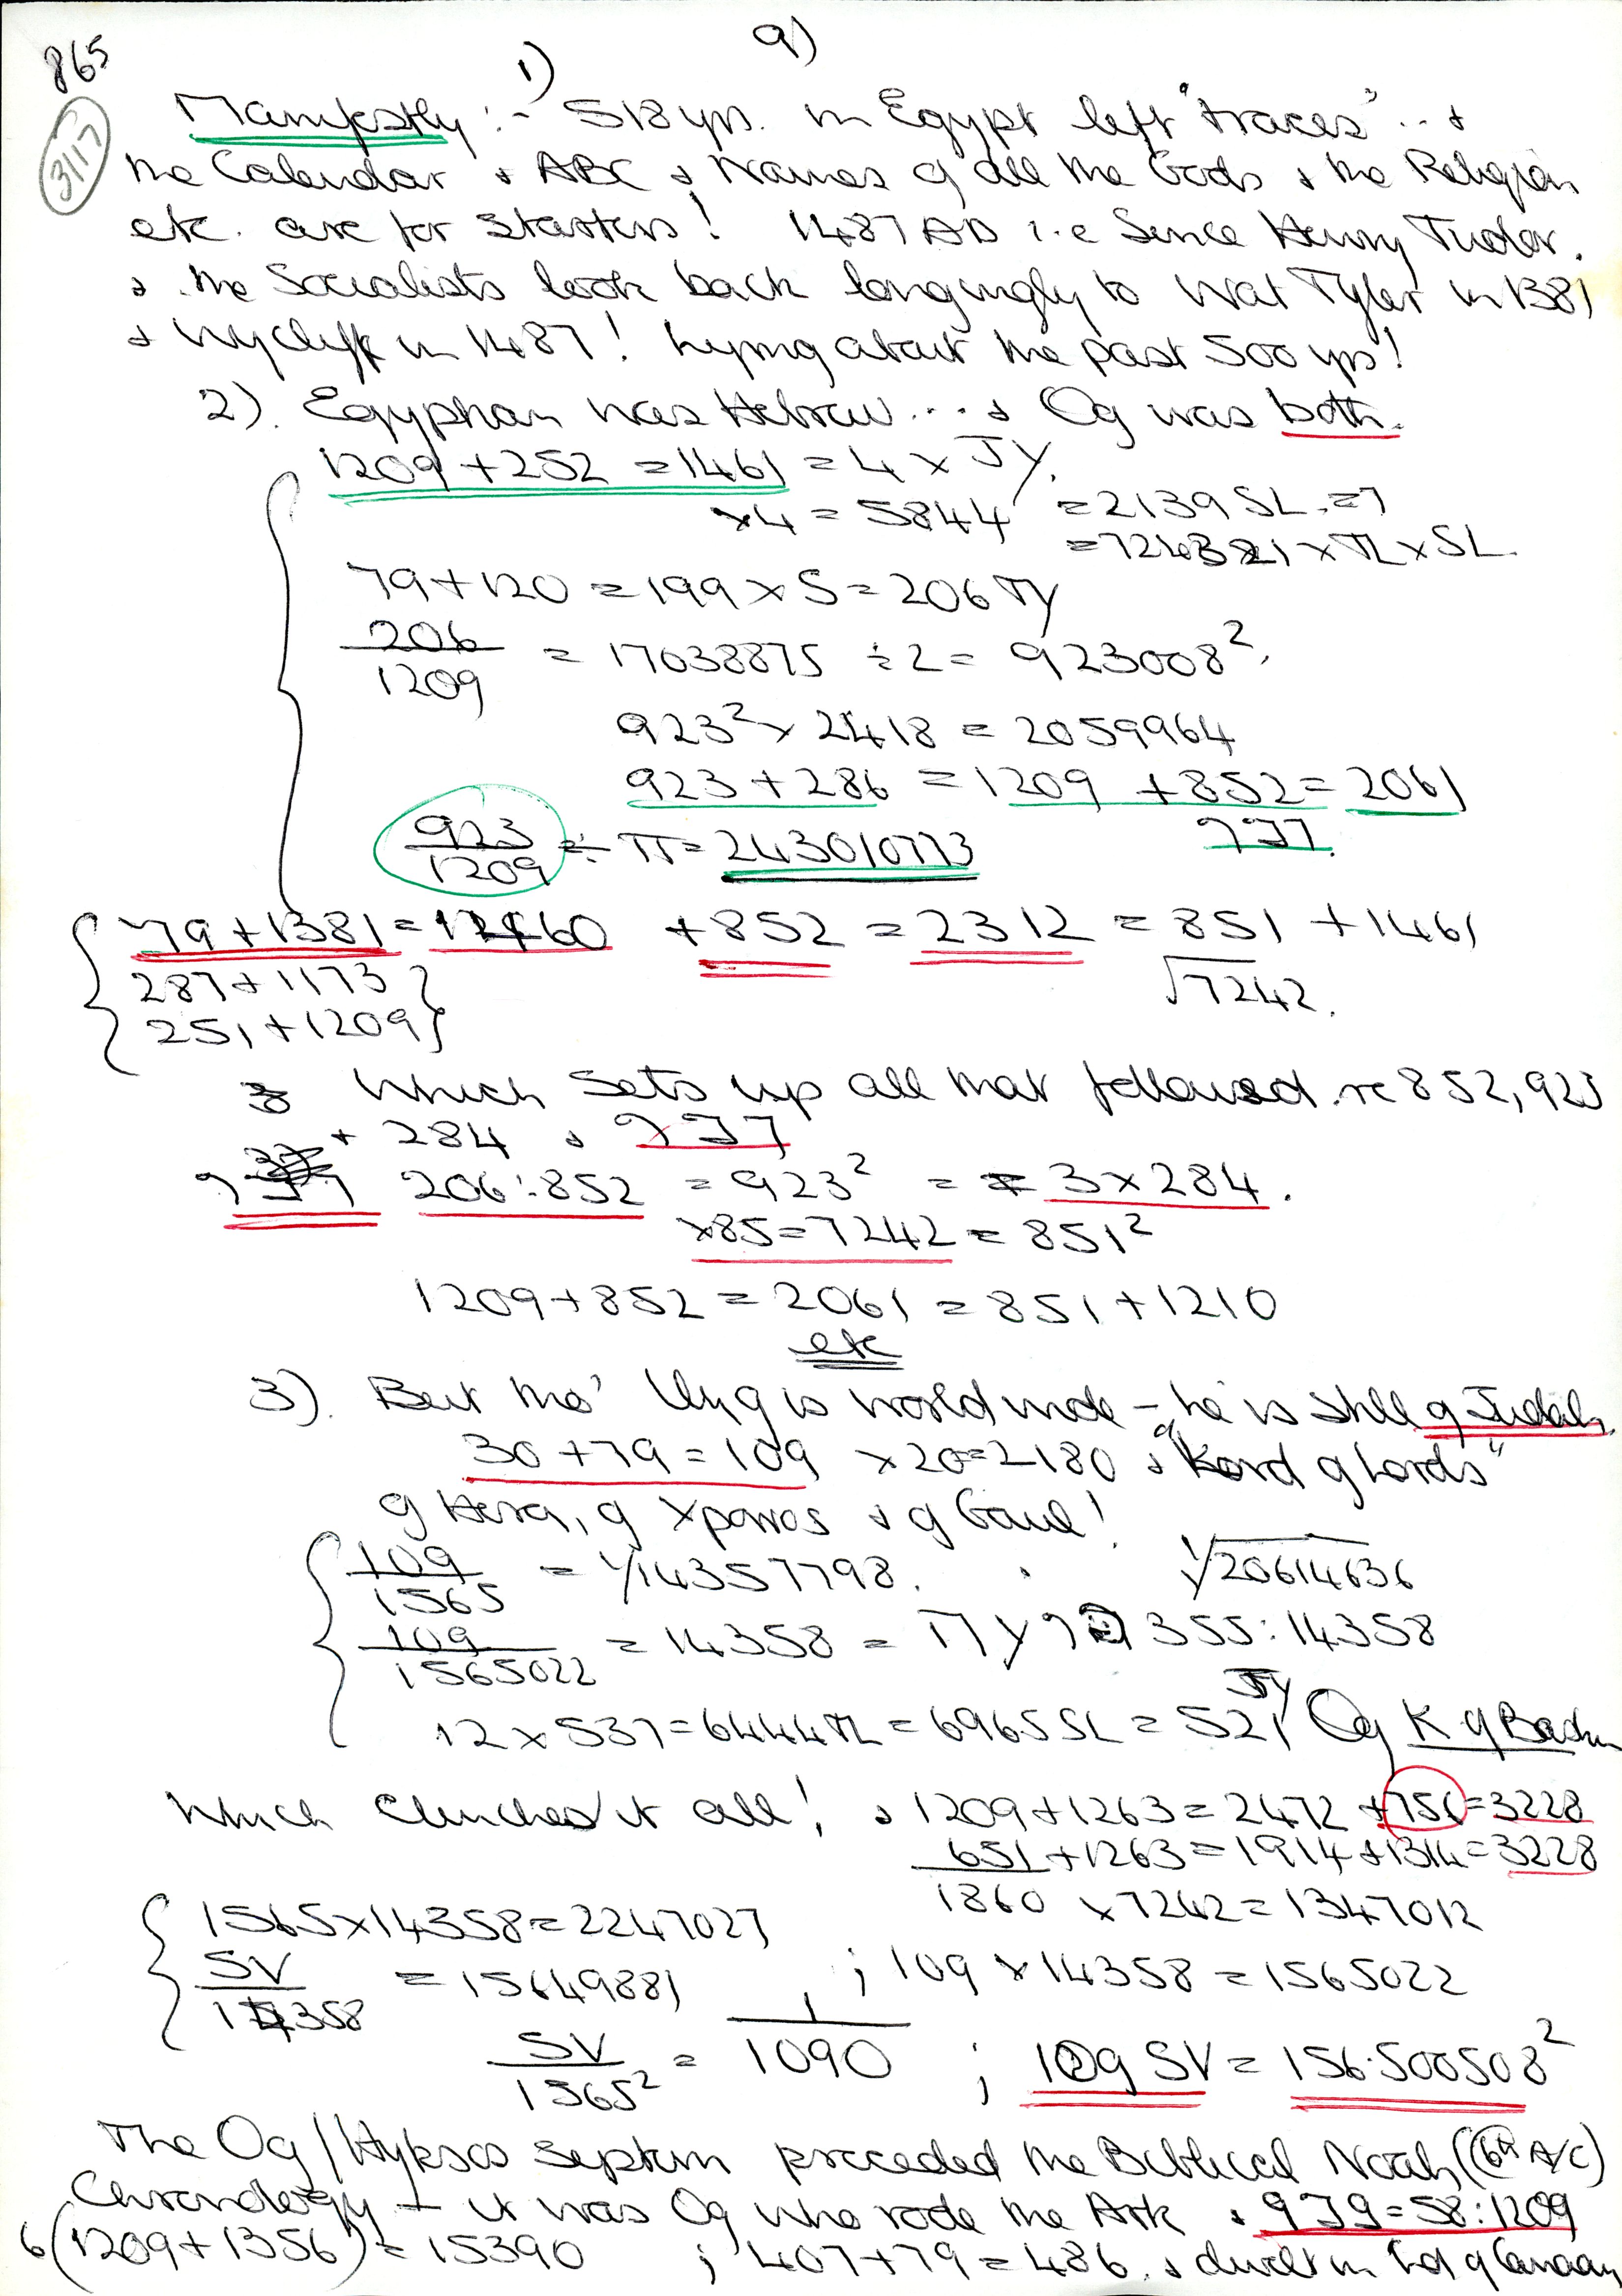 865
9)
3117
1)
Manifestly :- 518 yrs. in Egypt left "traces" .. &
the Calendar & ABC & Names of all the Gods & the Religion
etc. are for starters! 1487 AD i.e Since Henry Tudor.
& the Socialists look back longingly to Wat Tyler in 1381
& Wycliff in 1487! Lying about the past 500 yrs!
2). Egyptian was Hebrew .... & Og was both.
1209 + 252 = 1461 = 4 x JY.
x4 = 5844 = 2139 SL. = 7
x TL x SL.
79 + 120 = 199 x S = 206 TY
206/1209 = 17038875 ÷ 2 = 923008²,
923² x 2418 = 2059964
923 + 286 = 1209 + 852 = 2061
923/1209 ÷ π = 243010773
79 + 1381 = 1460 + 852 = 2312 = 851 + 1461
287 + 1173
√7242.
251 + 1209
Which sets up all that followed. re 852, 923
+ 284 &
206:852 = 923² = 3 x 284.
x85 = 7242 = 851²
1209 + 852 = 2061 = 851 + 1210
etc
3). But tho' is world wide - he is still of Judah.
30 + 79 = 109 x 20 = 2180 & "Lord of Lords"
of Hera, of & of Gaul!
109/1565 = 1/14357798. 1/√20614636
109/1565022 = 14358 = 355:14358
12 x 537 = 6444 TL = 6965 SL = 521 JY Og K of Bashan
Which Clinches it all! & 1209 + 1263 = 2472 + 756 = 3228
651 + 1263 = 1914 + 1314 = 3228
1860 x 7242 = 1347012
1565 x 14358 = 2247027
SV/14358 = 15649881 ; 109 x 14358 = 1565022
SV/1565² = 1/1090 ; 109 SV = 156.500508²
The Og / Hyksos Septum preceded the Biblical Noah, (6th A/C)
Chronology - it was Og who rode the Ark & = 58:1209
6(1209 + 1356) = 15390 ; 407 + 79 = 486. & dwelt in Ld of Canaan